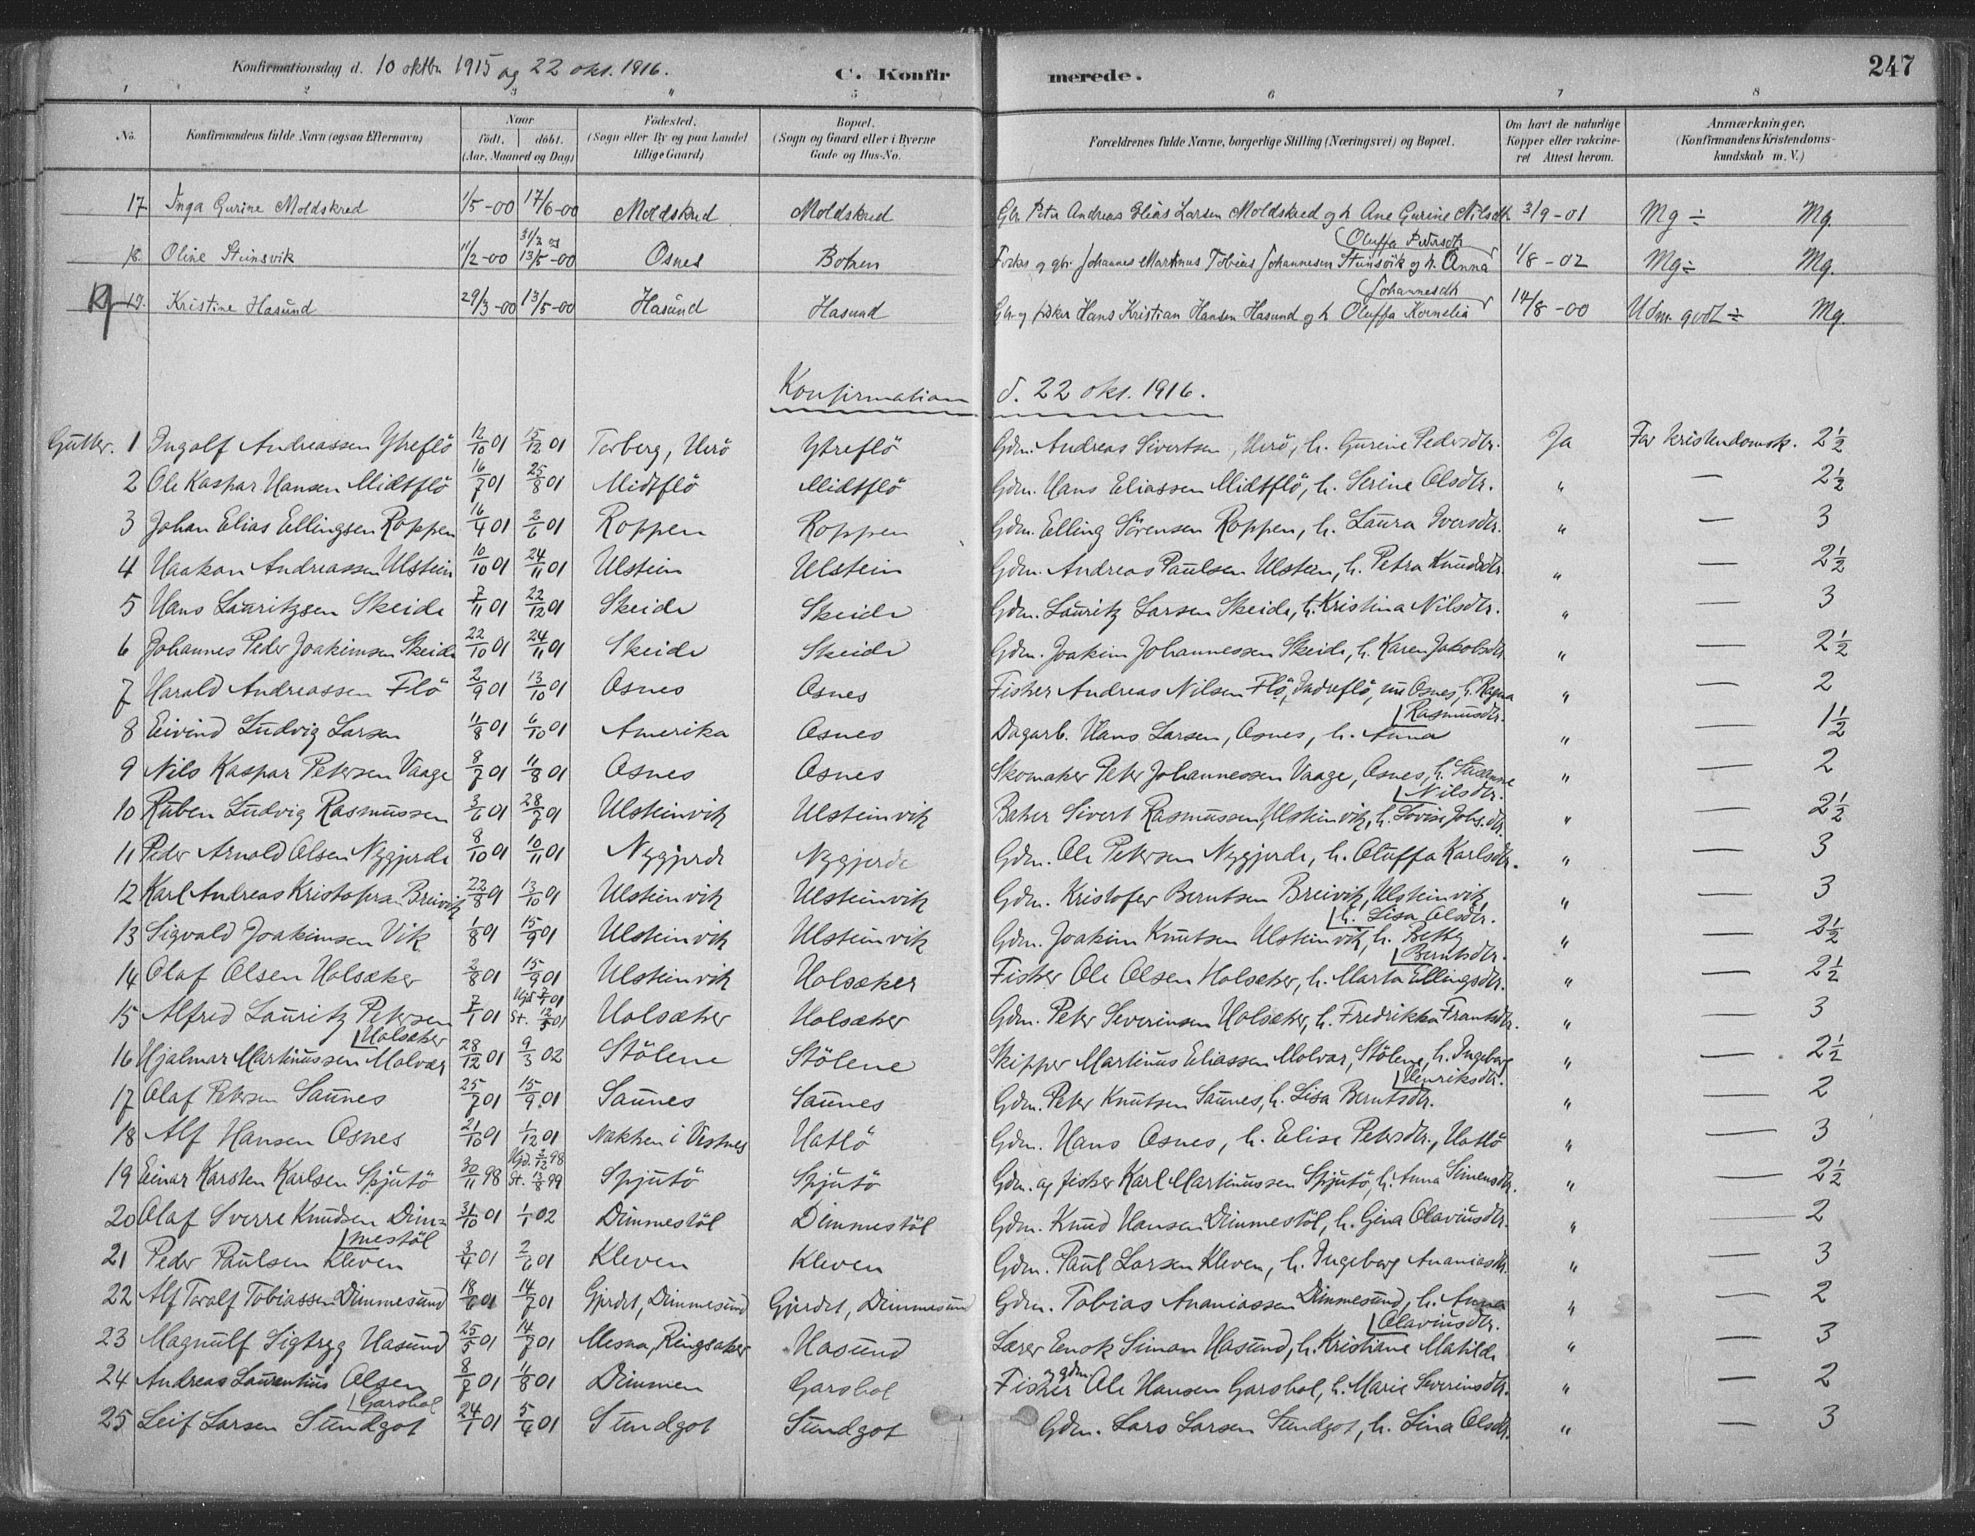 Konfirmationsdag d. 10 oktbr 1915 og 22 okt. 1916. C. Konfirmerede. 247
1 2 3 4 5 6 7 8
No. Konfirmandens fulde Navn (ogsaa Efternavn) Naar født, døbt. (Aar, Maaned og Dag) Fødested. (Sogn eller By og paa Landet tillige Gaard) Bopæl. (Sogn og Gaard eller i Byerne Gade og Hus-No. Forældrenes fulde Navne, borgerlige Stilling (Næringsvei) og Bopæl. Om havt de naturlige Kopper eller vakcineret Attest herom. Anmærkninger. (Konfirmandens Kristendomskundskab m. V.)
17 Inga Gurine Moldskred 1/5-00 17/6-00 Moldskred Moldskred Gbr. Peter Andreas Elias Larsen Moldskred og h. Ane Gurine Nilsdtr 3/9-01 Mg ÷ Mg.
18. Oline Steinsvik 11/2-00 13/5-00 Osnes Botnen Fisker og gbr. Johannes Martinus Tobias Johannesen Steinsvik og h. Anna Oluffa Pedersdtr 1/8-02 Mg ÷ Mg.
19. Kristine Hasund 29/3-00 13/5-00 Hasund Hasund Gbr. og fisker Hans Kristian Hansen Hasund og h. Oluffa Kornelia Johannesdtr 14/8-00 Udm. godt ÷ Mg.
Konfirmation d. 22 okt. 1916.
Gutter. 1 Ingolf Andreassen Ytreflö 12/10 01 15/12 01 Torberg, Herö Ytreflö Gdm. Andreas Sivertsen, Herö, h. Gurine Pedersdtr. Ja Far kristendomsk. 2 1/2
2 Ole Kaspar Hansen Midtflö 16/7 01 25/8 01 Midtflö Midtflö Gdm. Hans Eliassen Midtflö, h. Serine Olsdtr. " — 2 1/2
3 Johan Elias Ellingsen Roppen 16/4 01 2/6 01 Roppen Roppen Gdm. Elling Sörensen Roppen, h. Laura Iversdtr. " — 3
4 Haakon Andreassen Ulstein 10/10 01 24/11 01 Ulstein Ulstein Gdm. Andreas Paulsen Ulstein, h. Petra Knudsdtr. " — 2 1/2
5 Hans Lauritzsen Skeide 7/11 01 22/12 01 Skeide Skeide Gdm. Lauritz Larsen Skeide, h. Kristina Nilsdtr. " — 3
6 Johannes Peder Joakimsen Skeide 22/10 01 24/11 01 Skeide Skeide Gdm. Joakim Johannessen Skeide, h. Karen Jakobsdtr " — 2 1/2
7 Harald Andreassen Flö 2/9 01 13/10 01 Osnes Osnes Fisker Andreas Nilsen Flö, Indreflö, nu Osnes, h. Ragna Rasmusdtr. " — 2
8 Eivind Ludvig Larsen 11/8 01 6/10 01 Amerika Osnes Dagarb. Hans Larsen, Osnes, h. Anna " — 1 1/2
9 Nils Kaspar Petersen Vaage 8/7 01 11/8 01 Osnes Osnes Skomaker Peter Johannessen Vaage, Osnes, h. Susanne Nilsdtr. " — 2
10 Ruben Ludvig Rasmussen 3/6 01 28/7 01 Ulsteinvik Ulsteinvik Baker Sivert Rasmussen, Ulsteinvik, h. Lovise Johs.dtr. " — 2 1/2
11 Peder Arnold Olsen Nygjerde 8/10 01 10/11 01 Nygjerde Nygjerde Gdm. Ole Petersen Nygjerde, h. Oluffa Karlsdtr. " — 3
12 Karl Andreas Kristofersen Breivik 22/8 01 13/10 01 Ulsteinvik Ulsteinvik Gdm. Kristofer Berntsen Breivik, Ulsteinvik, h. Lisa Olsdtr. " — 3
13 Sigvald Joakimsen Vik 1/8 01 15/9 01 Ulsteinvik Ulsteinvik Gdm. Joakim Knutsen Ulsteinvik, h. Betty Berntsdtr. " — 2 1/2
14 Olaf Olsen Holsæker 2/8 01 15/9 01 Ulsteinvik Holsæker Fisker Ole Olsen Holsæker, h. Marta Ellingsdtr. " — 2 1/2
15 Alfred Lauritz Petersen Holsæker 7/1 01 Hjd 01 St. 01 Holsæker Holsæker Gdm. Peter Severinsen Holsæker, h. Fredrikka Frantsdtr. " — 3
16 Hjalmar Martinussen Molvær 28/12 01 9/3 02 Stölene Stölene Skipper Martinus Eliassen Molvær, Stölene, h. Ingeborg Henriksdtr. " — 2 1/2
17 Olaf Petersen Saunes 25/7 01 15/9 01 Saunes Saunes Gdm. Peter Knutsen Saunes, h. Lisa Berntsdtr. " — 2
18 Alf Hansen Osnes 21/10 01 1/12 01 Nakken i Vestnes Hatlö Gdm. Hans Osnes, h. Elise Petersdtr., Hatlö " — 3
19 Einar Karsten Karlsen Spjutö 30/11 98 Hjd. 3/12 98 St. 13/8 99 Spjutö Spjutö Gdm. og fisker Karl Martinussen Spjutö, h. Anna Simensdtr. " — 2 1/2
20 Olaf Sverre Knudsen Dimmestöl 31/10 01 1/1 02 Dimmestöl Dimmestöl Gdm. Knud Hansen Dimmestöl, h. Gina Olaviusdtr. " — 2
21 Peder Paulsen Kleven 3/4 01 2/6 01 Kleven Kleven Gdm. Paul Larsen Kleven, h. Ingeborg Ananiasdtr. " — 3
22 Alf Toralf Tobiassen Dimmesund 18/6 01 14/7 01 Gjerdet, Dimmesund Gjerdet, Dimmesund Gdm. Tobias Ananiassen Dimmesund, h. Anna Olaviusdtr. " — 2
23 Magnulf Sigtryg Hasund 25/5 01 14/7 01 Mesna, Ringsaker Hasund Lærer Enok Simon Hasund, h. Kristiane Matilde " — 3
24 Andreas Laurentius Olsen Garshol 8/7 01 11/8 01 Dimmen Garshol Fisker og gdm. Ole Hansen Garshol, h. Marie Severinsdtr. " — 2
25 Leif Larsen Sundgot 24/1 01 5/4 01 Sundgot Sundgot Gdm. Lars Larsen Sundgot, h. Lina Olsdtr. " — 3